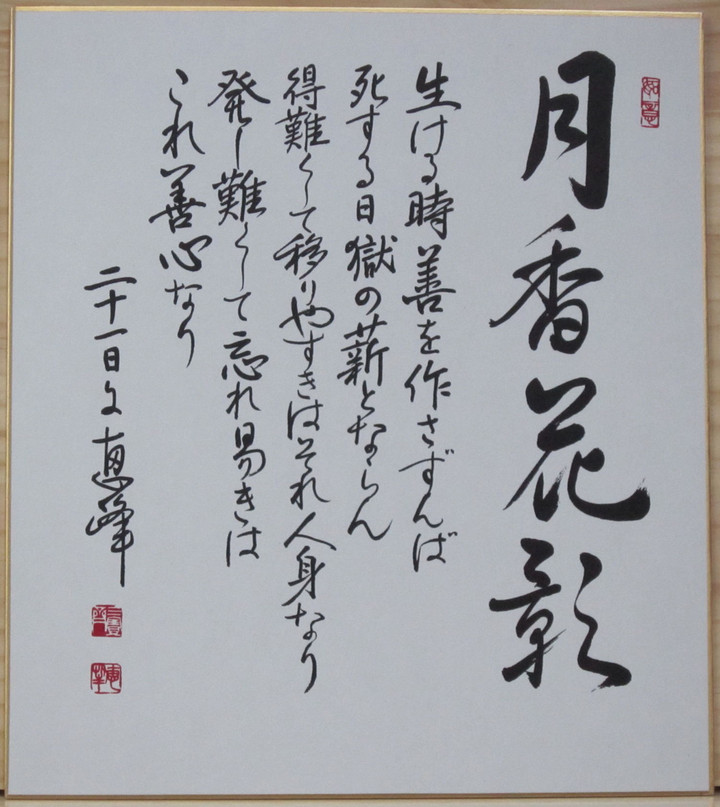 月香花彰
生ける時善を作さずんば
死する日獄の薪とならん
得難くして移りやすきはそれ人身なり
発し難くして忘れ易きは
これ善心なり
二十一日文 恵峰